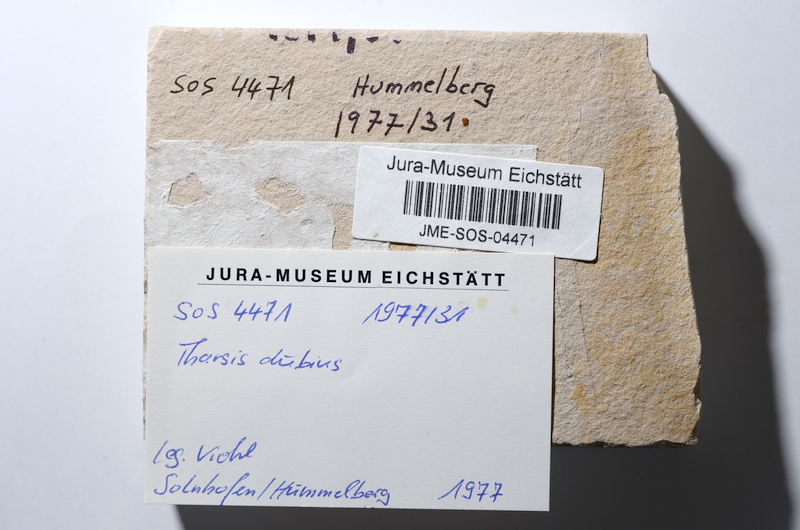 SOS 4471 Hummelberg
1977/31.
Jura-Museum Eichstätt
JME-SOS-04471
JURA-MUSEUM EICHSTÄTT
SOS 4471 1977/31
Tharsis dubius
leg. Viohl
Solnhofen/Hummelberg 1977